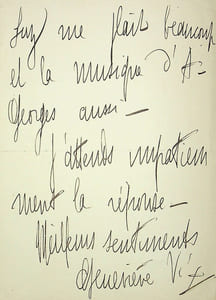 Suzy me plait beaucoup
et la musique d'A-
Georges aussi —
J'attends impatiem
ment la réponse —
Meilleurs sentiments
Geneviève Vix